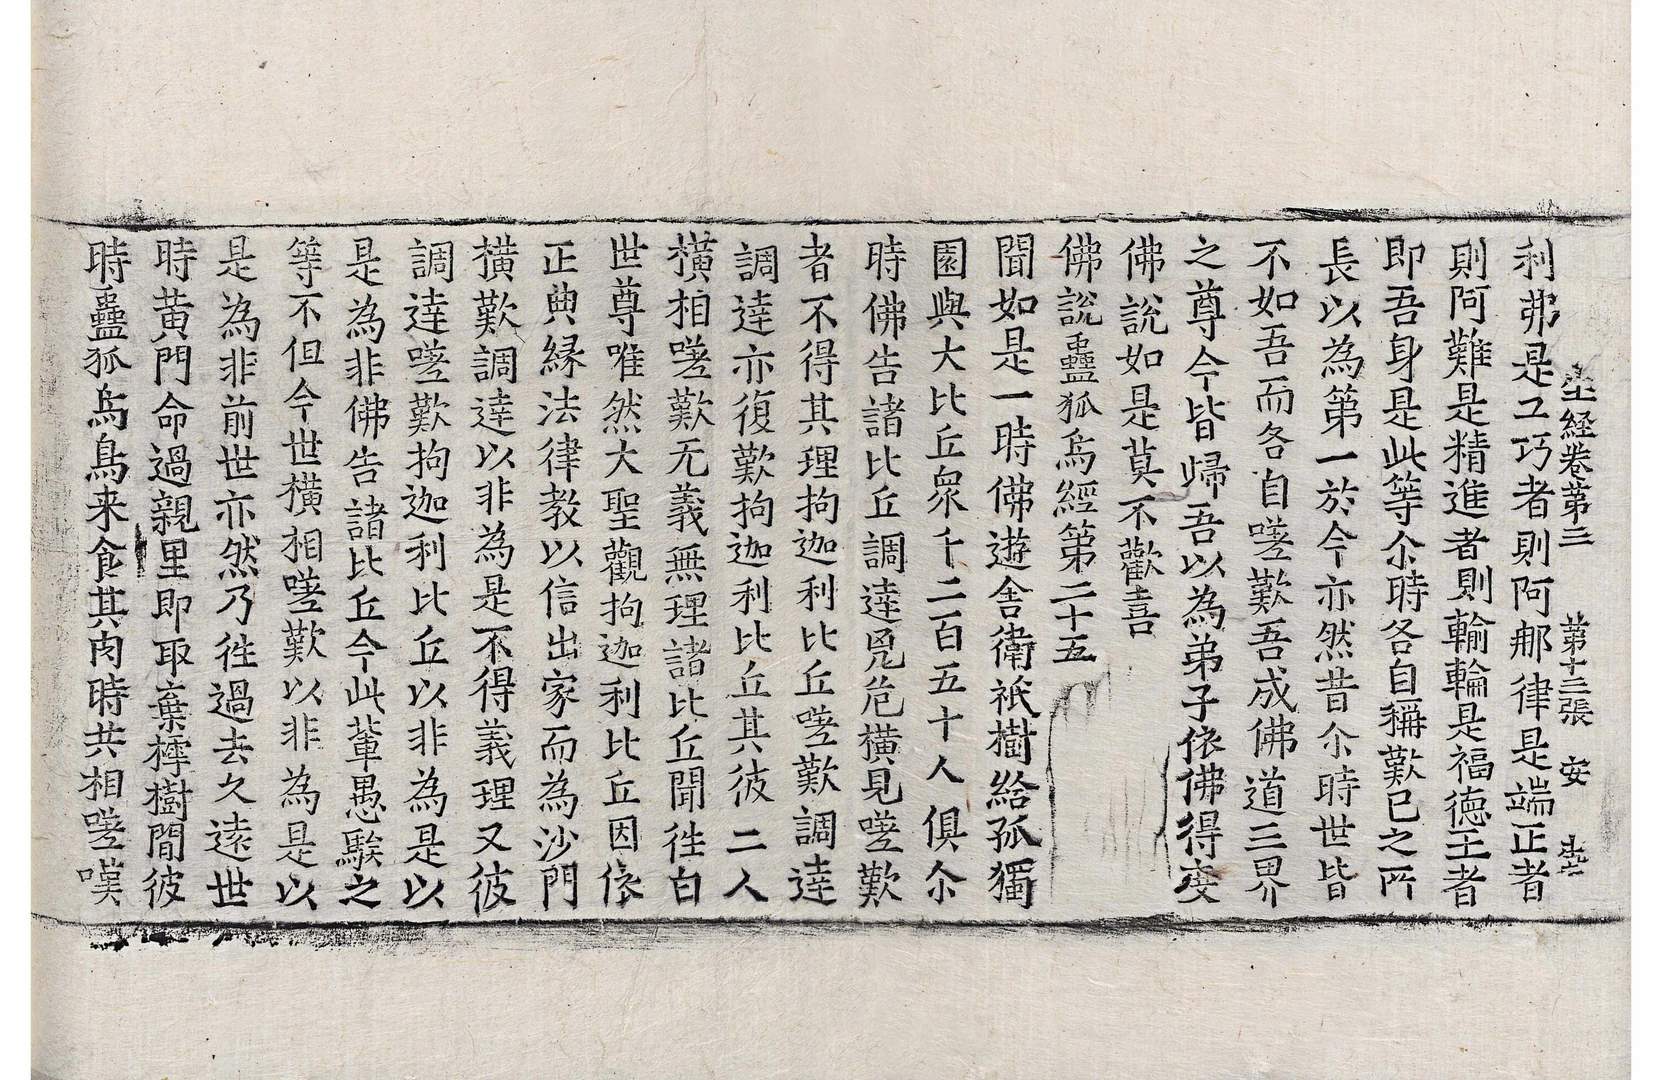 生經卷第三　第十三張　安
利弗是工巧者則阿那律是端正者
則阿難是精進者則輸輪是福德王者
即吾身是此等尒時各自稱歎已之所
長以為第一於今亦然昔尒時世皆
不如吾而各自嗟歎吾成佛道三界
之尊今皆歸吾以為弟子依佛得度
佛說如是莫不歡喜
佛說蠱狐烏經第二十五
聞如是一時佛遊舍衛祇樹給孤獨
園與大比丘衆千二百五十人俱尒
時佛告諸比丘調達㐫危橫見嗟歎
者不得其理拘迦利比丘嗟歎調達
調達亦復歎拘迦利比丘其彼二人
橫相嗟歎无義無理諸比丘聞徃白
世尊唯然大聖觀拘迦利比丘因依
正典緣法律教以信出家而為沙門
橫歎調達以非為是不得義理又彼
調達嗟歎拘迦利比丘以非為是以
是為非佛告諸比丘今此輩愚騃之
等不但今世橫相嗟歎以非為是以
是為非前世亦然乃徃過去久遠世
時黃門命過親里即取棄樗樹間彼
時蠱狐烏鳥来食其肉時共相嗟嘆